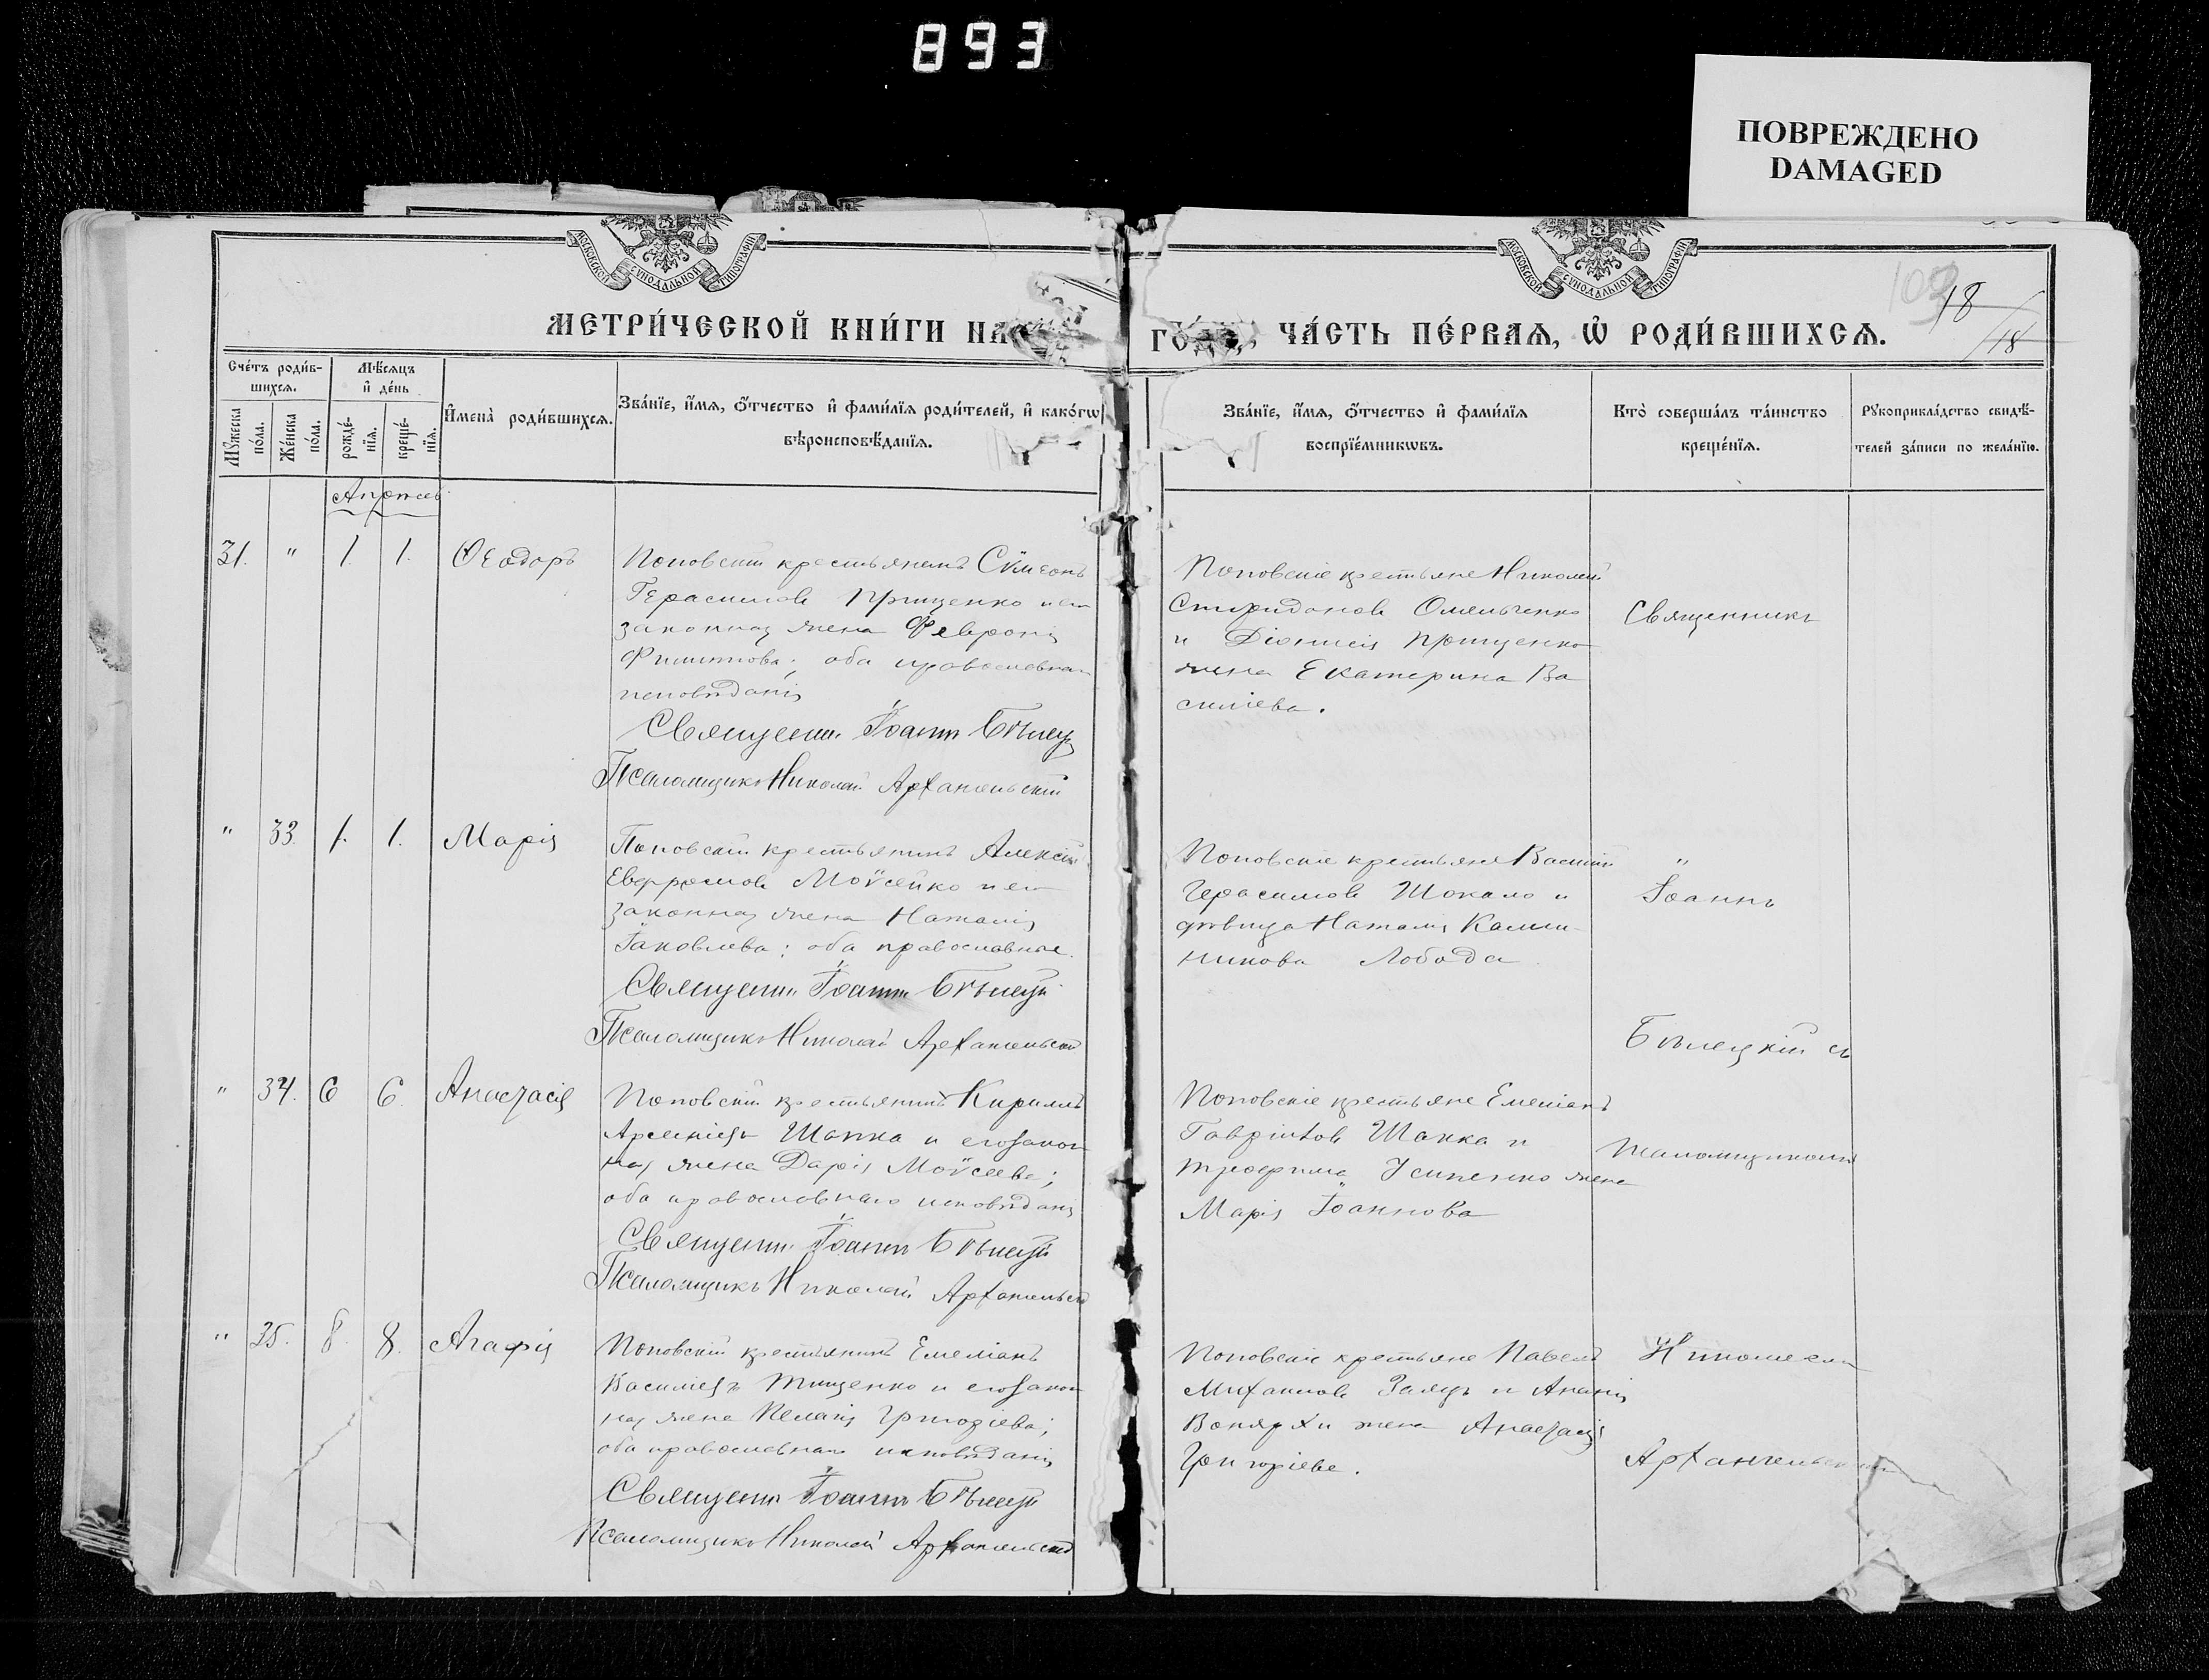 893
ПОВРЕЖДЕНО
DAMAGED
МОСКОВСКОЙ СУНОДАЛЬНОЙ ТИПОГРАФІИ
МОСКОВСКОЙ СУНОДАЛЬНОЙ ТИПОГРАФІИ
18
18
МЕТРИ́ЧЕСКОЙ КНИ́ГИ НА
ЧА́СТЬ ПЕ́РВАЯ, Ѡ РОДИ́ВШИХСЯ.
Сче́тъ роди́в-
шихся.
Мѣ́сяцъ
и де́нь
Му́жеска
по́ла.
Же́нска
по́ла.
рожде́-
нїя.
креще́-
нїя.
И҆мена̀ роди́вшихся.
Зва́нїе, и҆́мя, ѻ҆́тчество и҆ фами́лїя роди́телей, и҆ како́гѡ
вѣроисповѣ́данїя.
Зва́нїе, и҆́мя, ѻ҆́тчество и҆ фами́лїя
воспрїе́мникѡвъ.
Кто̀ соверша́лъ та́инство
креще́нїя.
Рꙋкоприкла́дство свидѣ́-
телей за́писи по жела́нїю.
Апрѣль
31. " 1. 1. Ѳеодоръ
Поповскій крестьянинъ Сѵмеонъ
Герасимовъ Грищенко и ег
законная жена Феврони
Филиппова; оба православнаго
исповѣданія
Священни. Іоаннъ Бѣлец
Псаломщикъ Николай Архангельскій
Поповскіе крестьяне Николай
Спиридоновъ Омельченко
и Діонисія Грищенко
жена Екатерина Ва
силіева.
Священникъ
" 33. 1. 1. Марія
Поповскій крестьянинъ Алексій
Моѵсейко и ег
законная жена Наталія
Іаковлева; оба православные.
Священни. Іоаннъ Бѣлецкій
Псаломщикъ Николай Архангельскій
Поповскіе крестьяне Василій
Герасимовъ Шокало и
дѣвица Наталія Калли-
никова Лобода
"
Іоаннъ
Бѣлецкій съ
" 34. 6 6. Анастасія
Поповскій крестьянинъ Кириллъ
Арсеніевъ Шапка и его закон
ная жена Дарія Моѵсеева;
оба православнаго исповѣданія
Священни. Іоаннъ Бѣлецкій
Псаломщикъ Николай Архангельскій
Поповскіе крестьяне Емеліанъ
Гавріиловъ Шапка и
Трофима Усипенко жена
Марія Іоаннова
псаломщикомъ
" 35. 8. 8. Агафія
Поповскій крестьянинъ Емеліанъ
Василіевъ Тищенко и его закон
ная жена Пелагія Григоріева;
оба православнаго исповѣданія
Священни Іоаннъ Бѣлецкій
Псаломщикъ Николай Архангельскій
Поповскіе крестьяне Павелъ
Михаиловъ Заяцъ и Ананія
жена Анастасія
Григоріева.
Николаемъ
Архангельскимъ